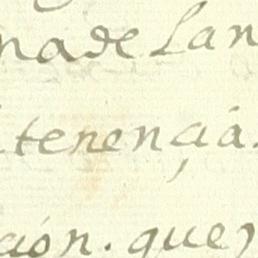 nade Lan
tenençia.
çión. que